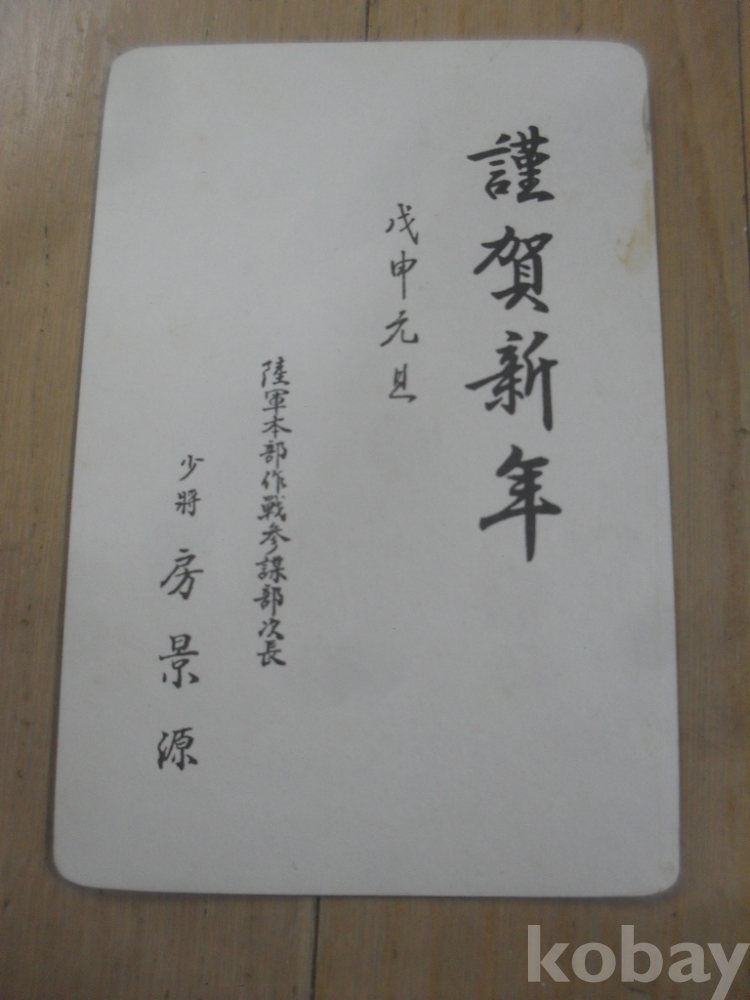 謹賀新年
戊申元旦
陸軍本部作戰參謀部次長
少將 房景源
kobay